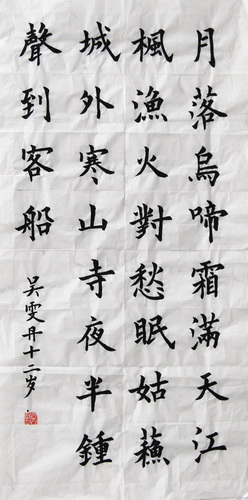 月落烏啼霜滿天江
楓漁火對愁眠姑蘓
城外寒山寺夜半鍾
聲到客船
吴雯丹十二岁